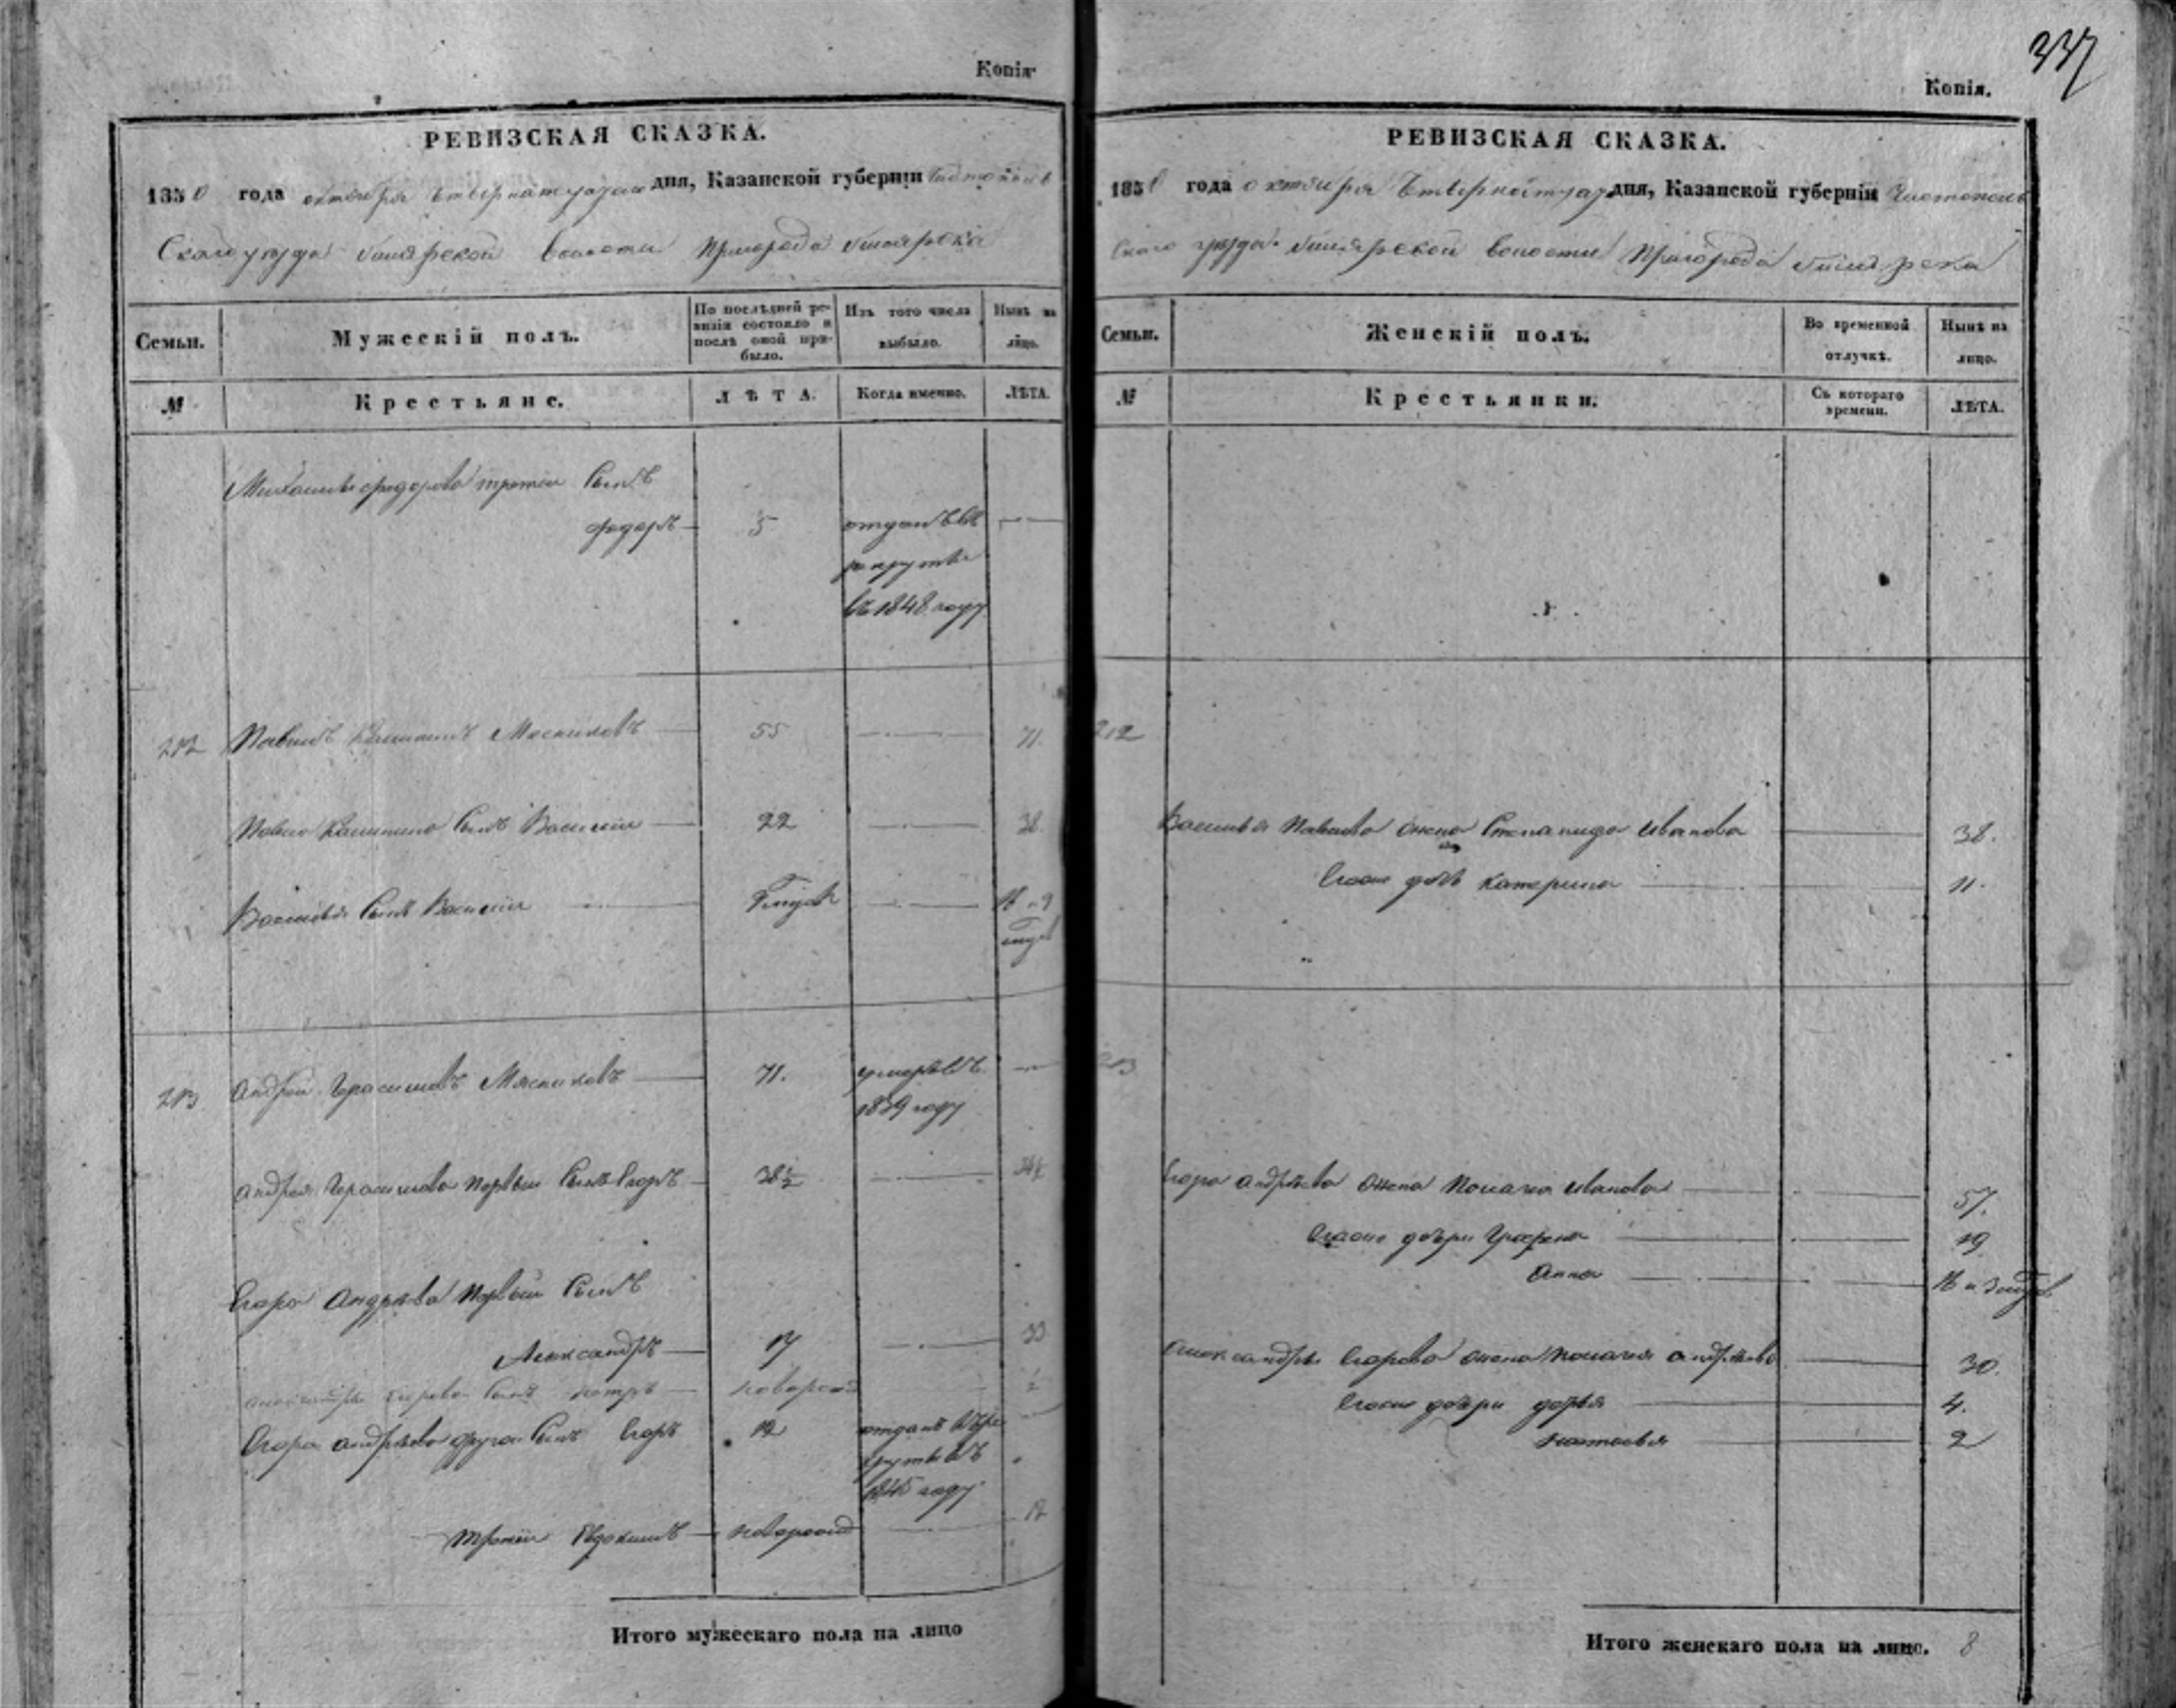 Копія
РЕВИЗСКАЯ СКАЗКА.
1850 года октября дня, Казанской губерніи Чистополь
Скаго уезда Билярской волости Пригорода Билярска
Семьи. Мужескій полъ. По послѣдней ревизіи состояло и послѣ оной прибыло. Изъ того числа выбыло. Нынѣ на лицо.
№ Крестьяне. ЛѢТА. Когда именно. ЛѢТА.
Михаила федорова третей Сынъ
федоръ 5 отданъ въ
рекруты
въ 1848 году
212 Павелъ Мясниковъ 55 71.
Павла Сынъ Василии 22 38
Василья Сынъ Василии 16 и 9
213 андрей Герасимовъ Мясниковъ 71. умеръ въ
1839 году
андрея Герасимова первыи Сынъ Егоръ 38½ 54½
Егора андреева первыи Сынъ
Александръ 17 33
александра Егорова Сынъ петръ новорож ½
Егора андреева другой Сынъ Егоръ 12 отданъ въ ре
круты въ
1845 году
третей Евдокимъ новорожд 17
Итого мужескаго пола на лицо
337
Копія.
РЕВИЗСКАЯ СКАЗКА.
1850 года октября дня, Казанской губерніи Чистополь
Скаго уезда Билярской волости Пригорода Билярска
Семьи. Женскій полъ. Во временной отлучкѣ. Нынѣ на лицо.
№ Крестьянки. Съ котораго времени. ЛѢТА.
212
Василья Павлова жена Степанида иванова 38.
Егоже дочь катерина 11.
213
Егора андреева жена Пелагея иванова 57.
Егоже дочери Графена 19
Анна 16 и 3
александра Егорова жена пелагея андреева 30.
Егоже дочери дарья 4.
настасья 2
Итого женскаго пола на лице. 8